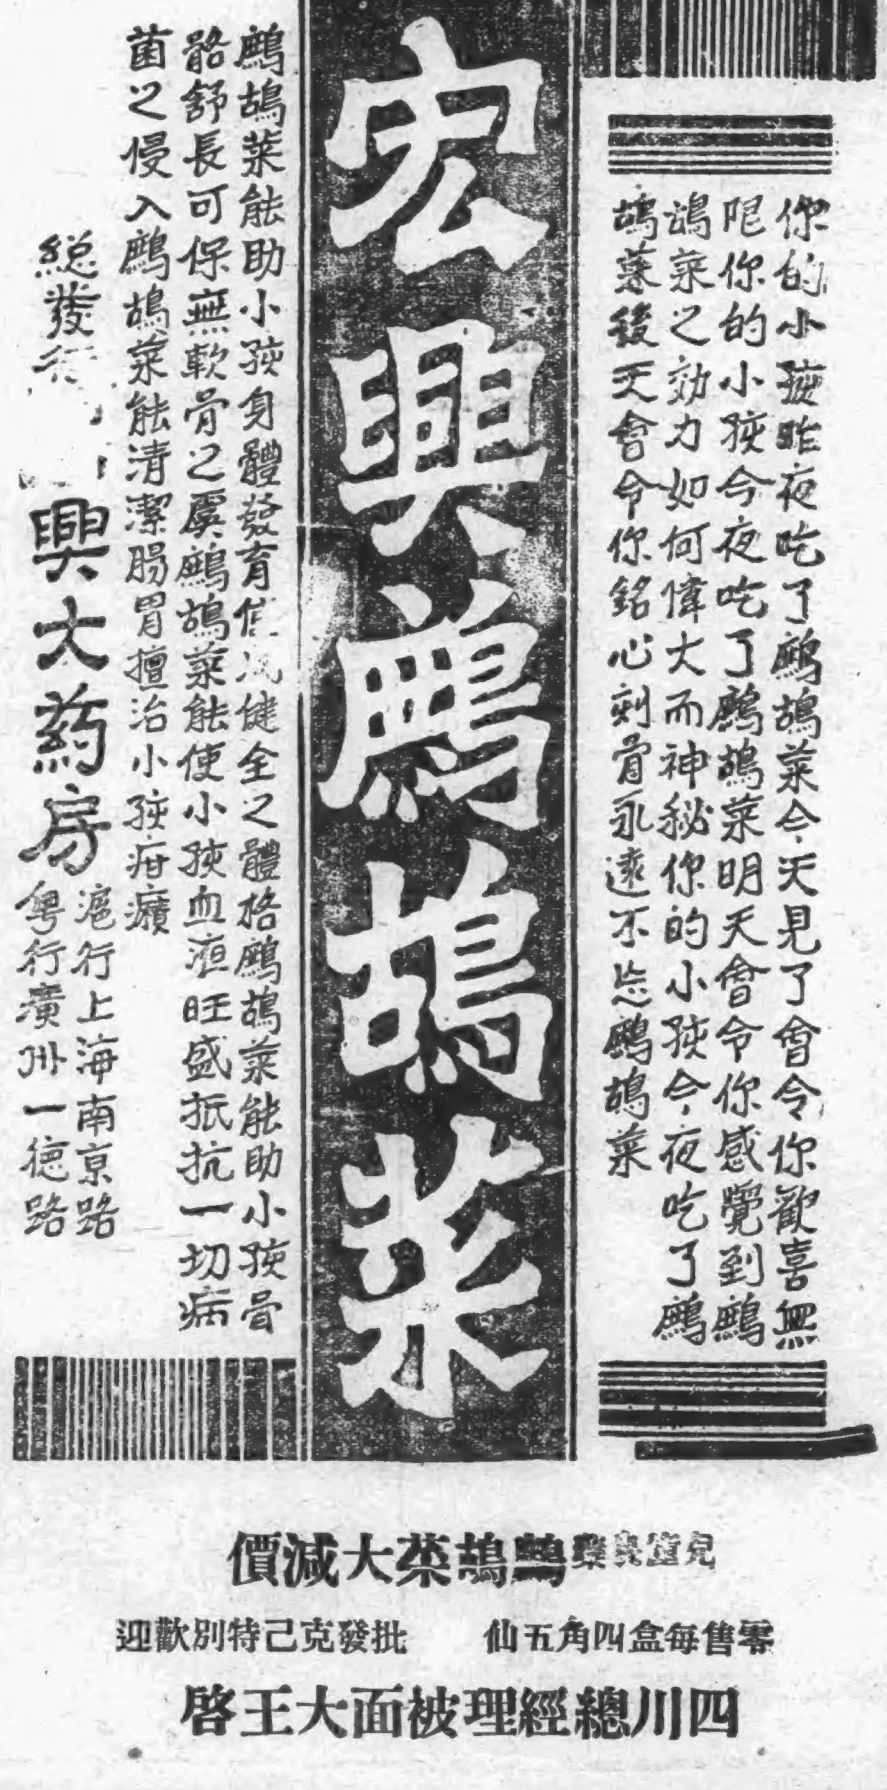 你的小孩昨夜吃了鷓鴣菜今天見了會令你歡喜無
限你的小孩今夜吃了鷓鴣菜明天會令你感覺到鷓
鴣菜之効力如何偉大而神秘你的小孩今夜吃了鷓
鴣菜後天會令你銘心刻骨永遠不忘鷓鴣菜
宏興鷓鴣菜
鷓鴣菜能助小孩身體發育健全之體格鷓鴣菜能助小孩骨
骼舒長可保無軟骨之虞鷓鴣菜能使小孩血液旺盛抵抗一切病
菌之侵入鷓鴣菜能清潔腸胃擅治小孩疳癪
總發行
興大葯房
滬行上海南京路
粵行廣州一德路
兒童良藥鷓鴣菜大減價
零售每盒四角五仙 批發克己特別歡迎
四川總經理被面大王啓